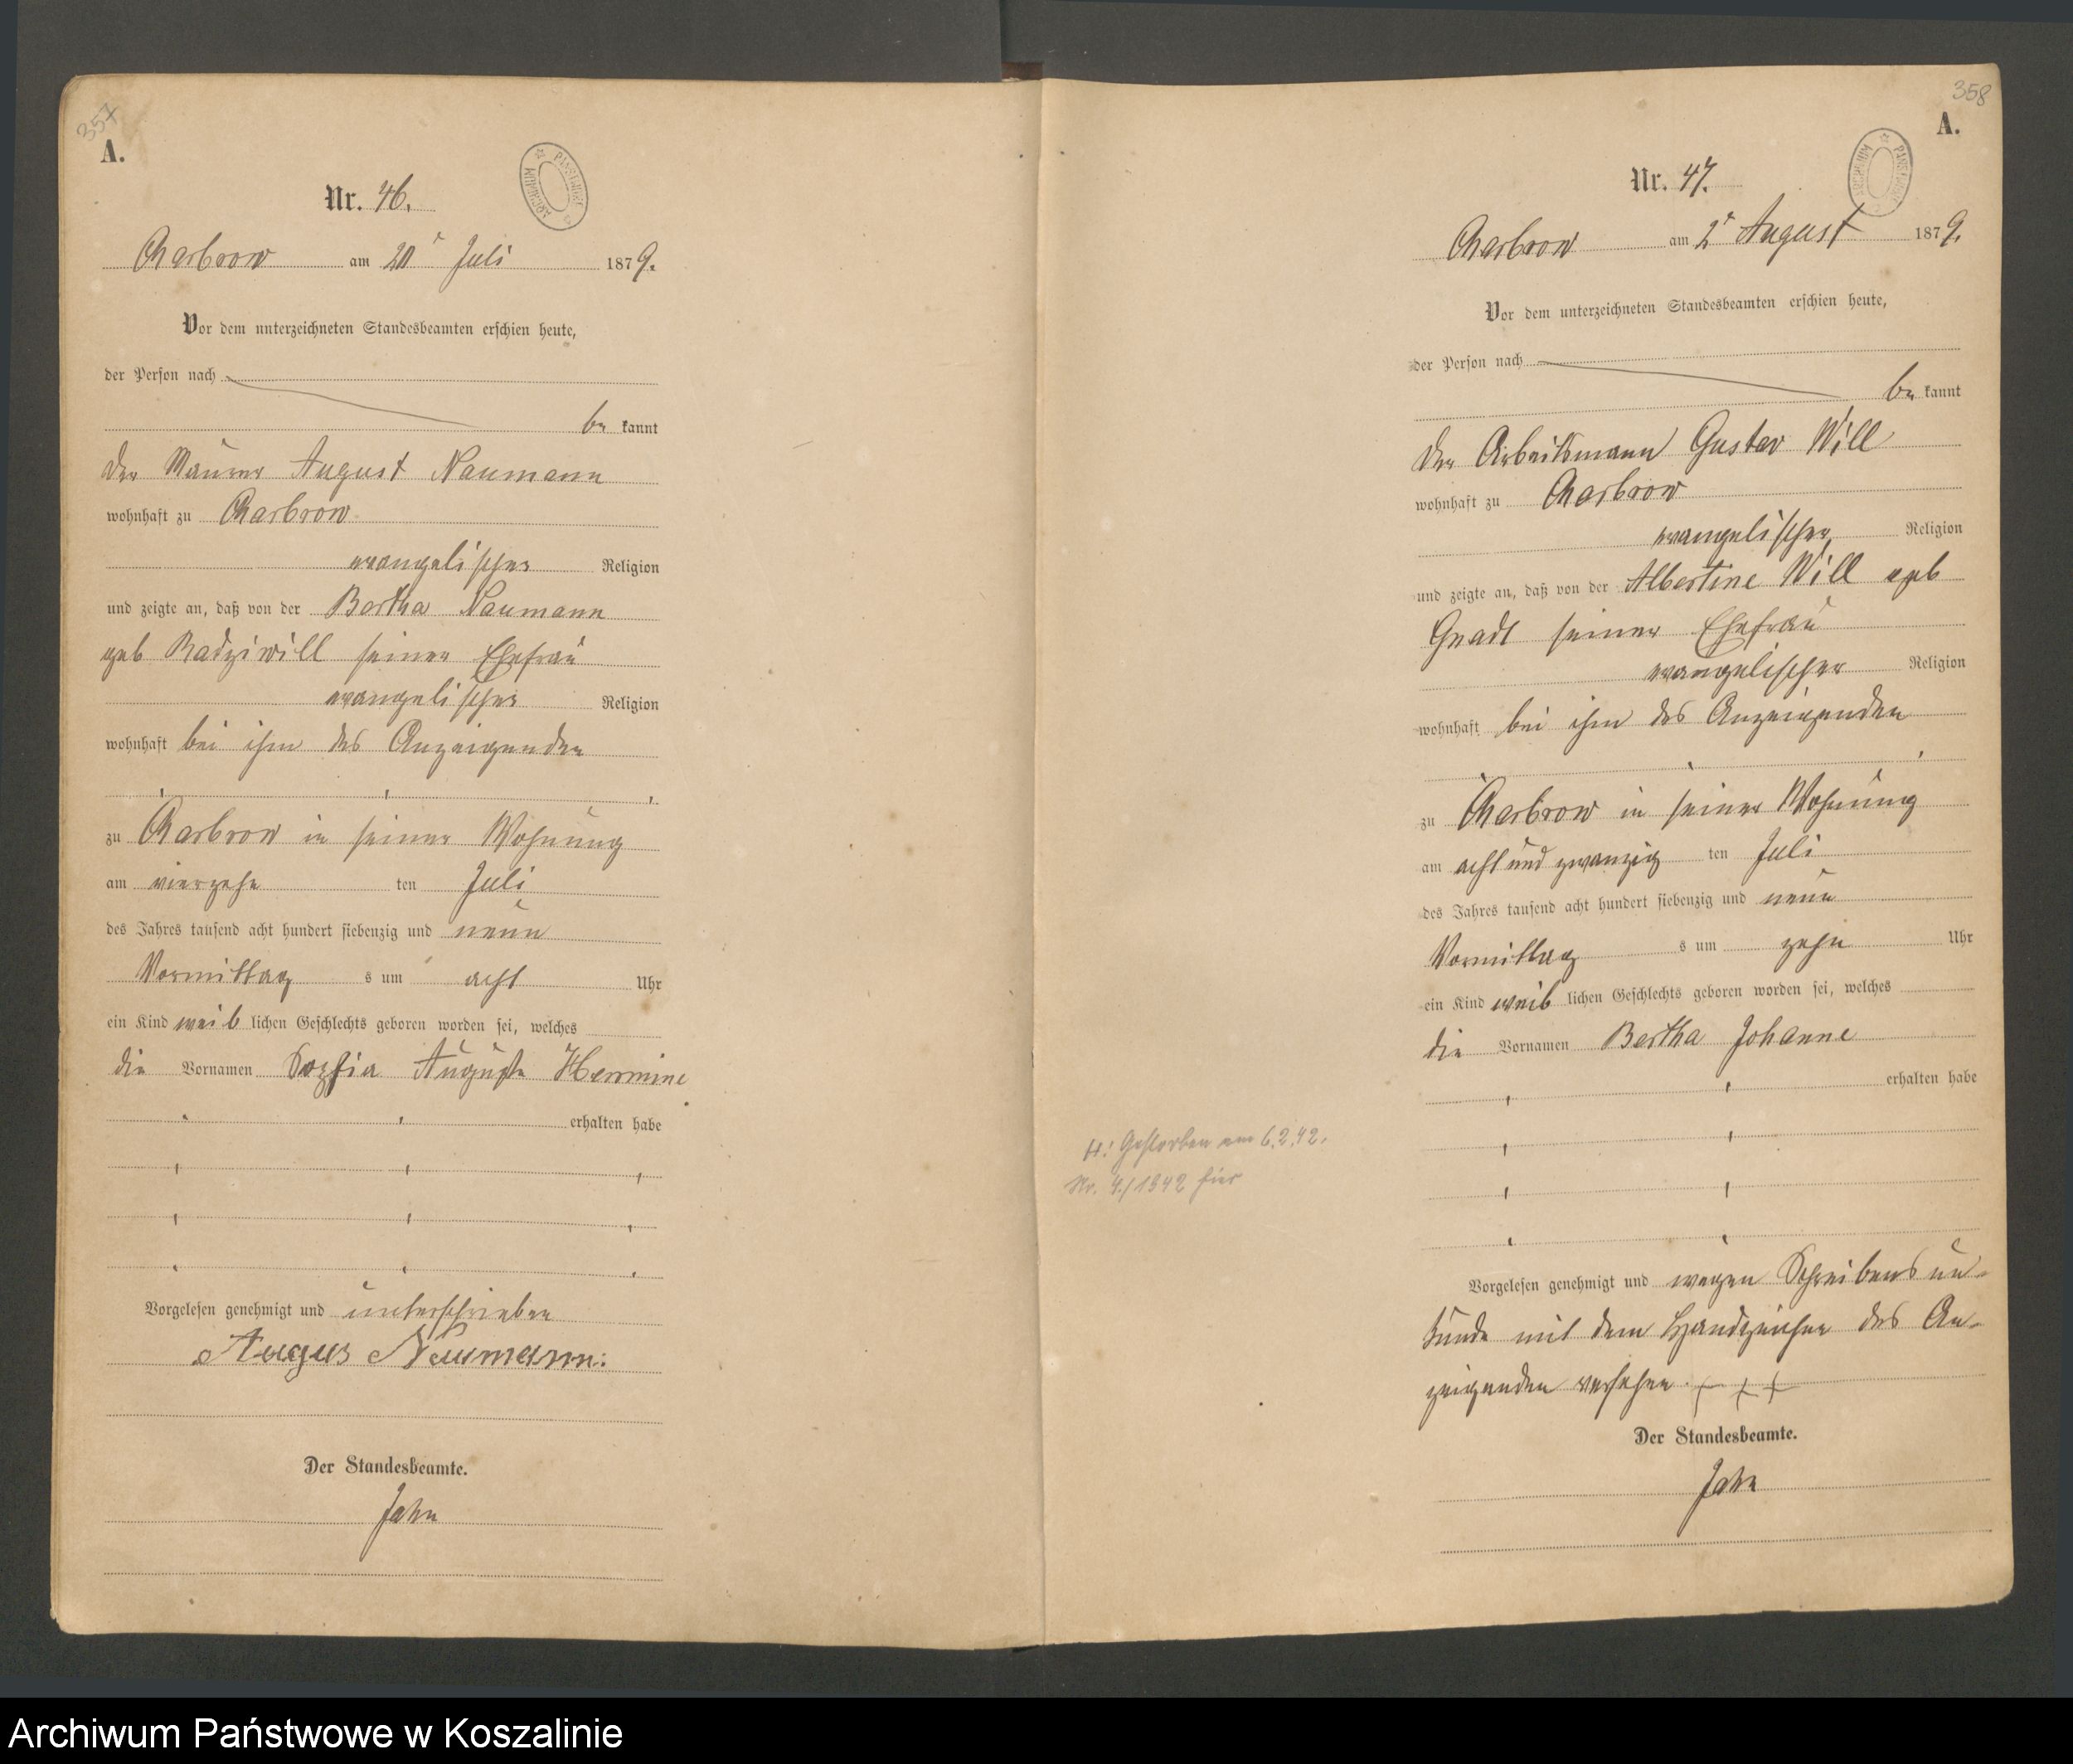 357
A.
Nr. 46.
Charbrow am 20ᵗ Juli 1879.
Vor dem unterzeichneten Standesbeamten erschien heute,
der Person nach
be kannt
der Maurer August Naumann
wohnhaft zu Charbrow
evangelischer Religion
und zeigte an, daß von der Bertha Naumann
geb Radziwill seiner Ehefrau
evangelischer Religion
wohnhaft bei ihm des Anzeigenden
zu Charbrow in seiner Wohnung
am vierzehn ten Juli
des Jahres tausend acht hundert siebenzig und neun
Vormittag s um acht Uhr
ein Kind weib lichen Geschlechts geboren worden sei, welches
die Vornamen Sophia Auguste Hermine
erhalten habe
Vorgelesen genehmigt und unterschrieben
Augus Neumann:
Der Standesbeamte.
Jahn
358
A.
ARCHIWUM PAŃSTWOWE
Nr. 47.
Charbrow am 2ᵗ August 1879.
Vor dem unterzeichneten Standesbeamten erschien heute,
der Person nach
be kannt
der Arbeitsmann Gustav Will
wohnhaft zu Charbrow
evangelischer Religion
und zeigte an, daß von der Albertine Will geb
Gnadt seiner Ehefrau
evangelischer Religion
wohnhaft bei ihm des Anzeigenden
zu Charbrow in seiner Wohnung
am acht und zwanzig ten Juli
des Jahres tausend acht hundert siebenzig und neun
Vormittag s um zehn Uhr
ein Kind weib lichen Geschlechts geboren worden sei, welches
die Vornamen Bertha Johanne
erhalten habe
H: Gestorben am 6.2.42.
Nr. 4/1942 hier
Vorgelesen genehmigt und wegen Schreibensun-
kunde mit dem Handzeichen des An-
zeigenden versehen. + + +
Der Standesbeamte.
Jahn
Archiwum Państwowe w Koszalinie